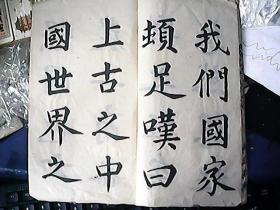 我們國家
頓足嘆曰
上古之中
國世界之